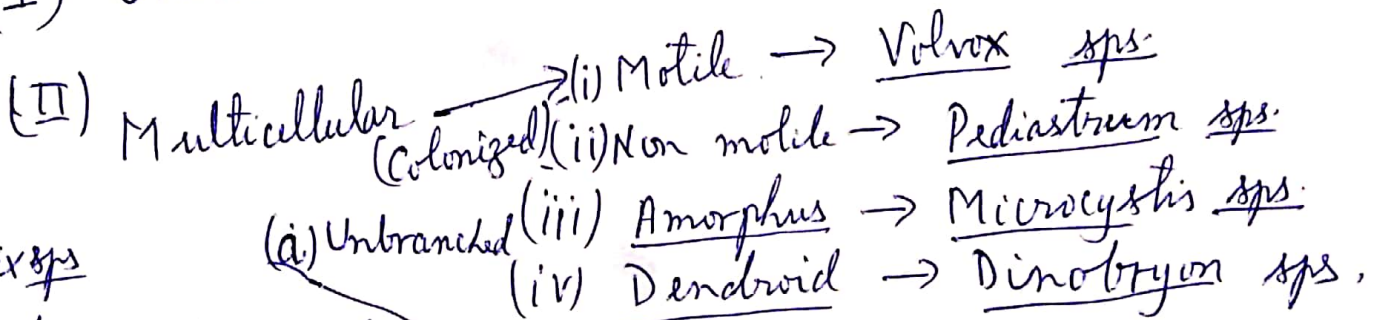 (II) Multicellular (Colonized) → (i) Motile → Volvox sps.
(ii) Non motile → Pediastrum sps.
(a) Unbranched (iii) Amorphus → Microcystis sps.
(iv) Dendroid → Dinobryon sps.
sps